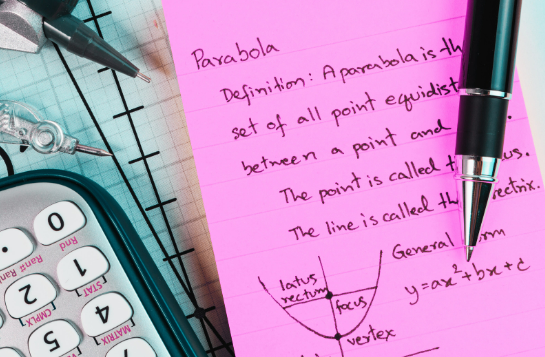 Parabola
Definition: A parabola is th
set of all point equidist
between a point and
The point is called t us.
The line is called th rectrix.
General rm
y=ax²+bx+c
latus
rectum
focus
vertex
0
Rnd
Ran#
1
STAT
2
CMPLX
4
MATRIX
5